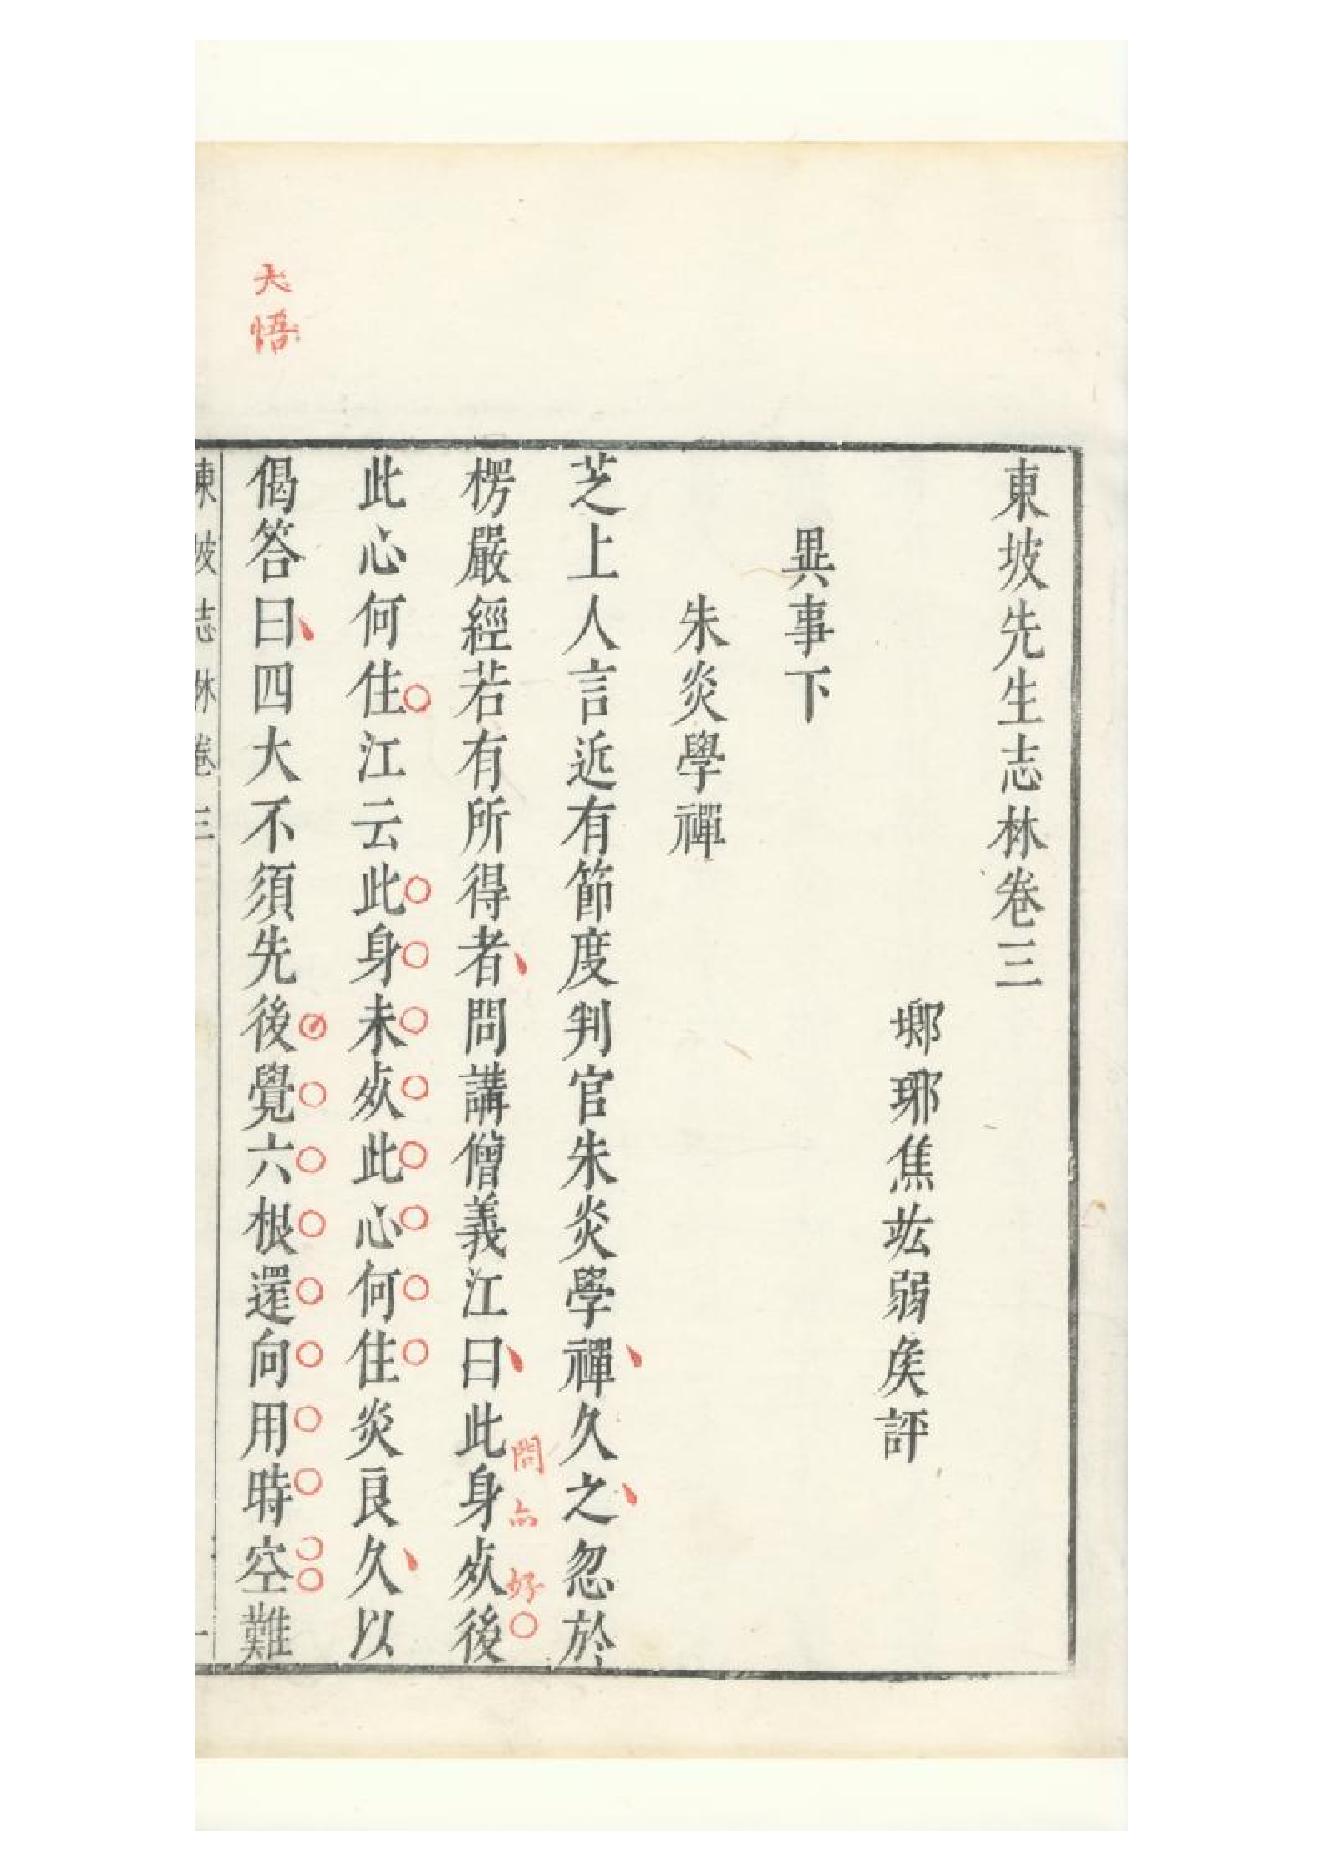 東坡先生志林卷三
瑯琊焦竑弱侯評
異事下
朱炎學禪
芝上人言近有節度判官朱炎學禪久之忽於
楞嚴經若有所得者問講僧義江曰此身死後
問亦好
此心何住江云此身未死此心何住炎良久以
偈答曰四大不須先後覺六根還向用時空難
大悟
東坡志林卷三
一